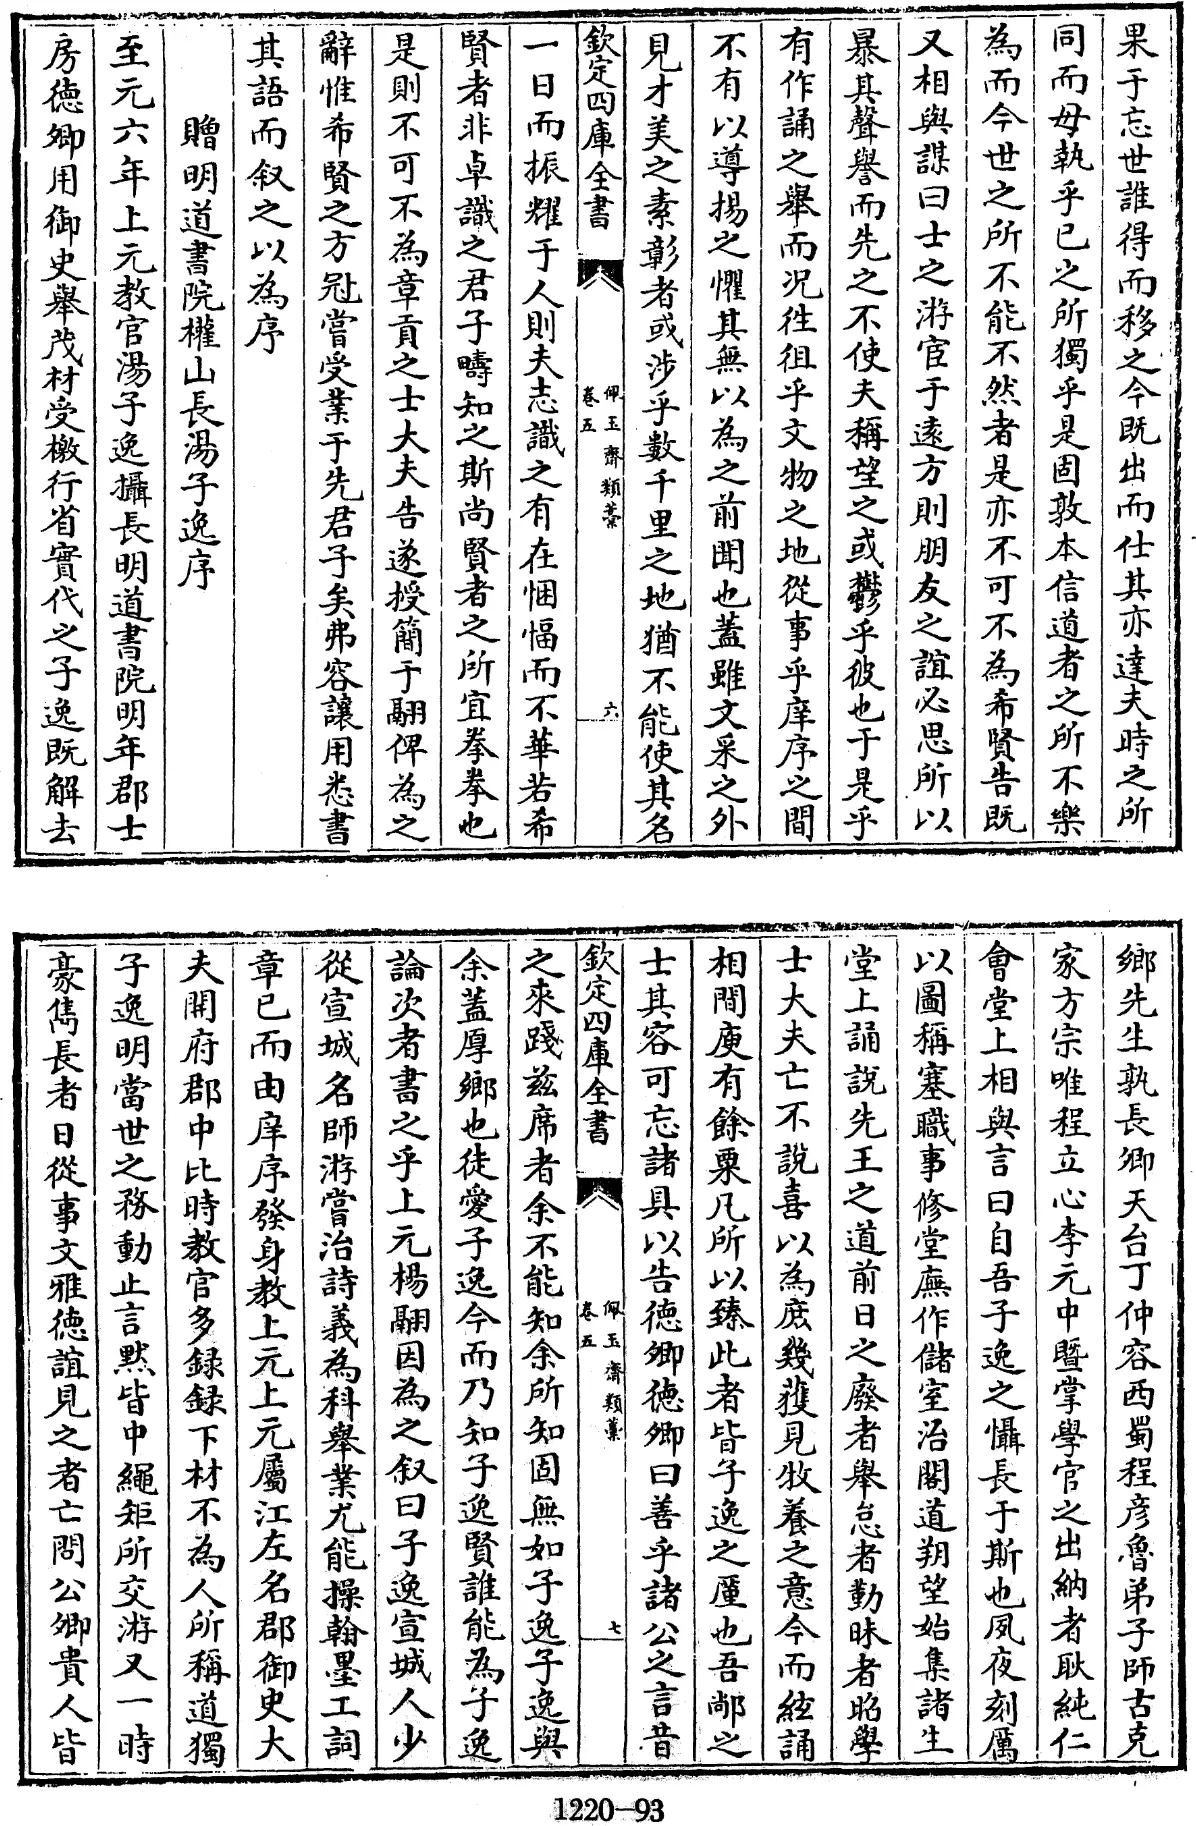 果于忘世誰得而移之今既出而仕其亦達夫時之所
同而毋執乎已之所獨乎是固敦本信道者之所不樂
為而今世之所不能不然者是亦不可不為希賢告既
又相與謀曰士之游宦于遠方則朋友之誼必思所以
暴其聲譽而先之不使夫稱望之或鬱乎彼也于是乎
有作誦之舉而况徃徂乎文物之地從事乎庠序之間
不有以導揚之懼其無以為之前聞也蓋雖文采之外
見才美之素彰者或涉乎數千里之地猶不能使其名
欽定四庫全書
佩玉齋類藁
卷五
六
一日而振耀于人則夫志識之有在悃愊而不華若希
賢者非卓識之君子疇知之斯尚賢者之所宜拳拳也
是則不可不為章貢之士大夫告遂授簡于翮俾為之
辭惟希賢之方冠嘗受業于先君子矣弗容讓用悉書
其語而叙之以為序
贈明道書院權山長湯子逸序
至元六年上元教官湯子逸攝長明道書院明年郡士
房德卿用御史舉茂材受檄行省實代之子逸既解去
鄉先生孰長卿天台丁仲容西蜀程彦魯弟子師古克
家方宗唯程立心李元中暨掌學官之出納者耿純仁
會堂上相與言曰自吾子逸之懾長于斯也夙夜刻厲
以圖稱塞職事修堂廡作儲室治閣道朔望始集諸生
堂上誦說先王之道前日之廢者舉怠者勤昧者昭學
士大夫亡不說喜以為庶幾獲見牧養之意今而絃誦
相間庾有餘粟凡所以臻此者皆子逸之厪也吾鄗之
士其容可忘諸具以告德卿德卿曰善乎諸公之言昔
欽定四庫全書
佩玉齋類藁
卷五
七
之來踐兹席者余不能知余所知固無如子逸子逸與
余蓋厚鄉也徒愛子逸今而乃知子逸賢誰能為子逸
論次者書之乎上元楊翮因為之叙曰子逸宣城人少
從宣城名師游嘗治詩義為科舉業尤能操翰墨工詞
章已而由庠序發身教上元上元屬江左名郡御史大
夫開府郡中比時教官多録録下材不為人所稱道獨
子逸明當世之務動止言默皆中繩矩所交游又一時
豪雋長者日從事文雅德誼見之者亡問公卿貴人皆
1220-93